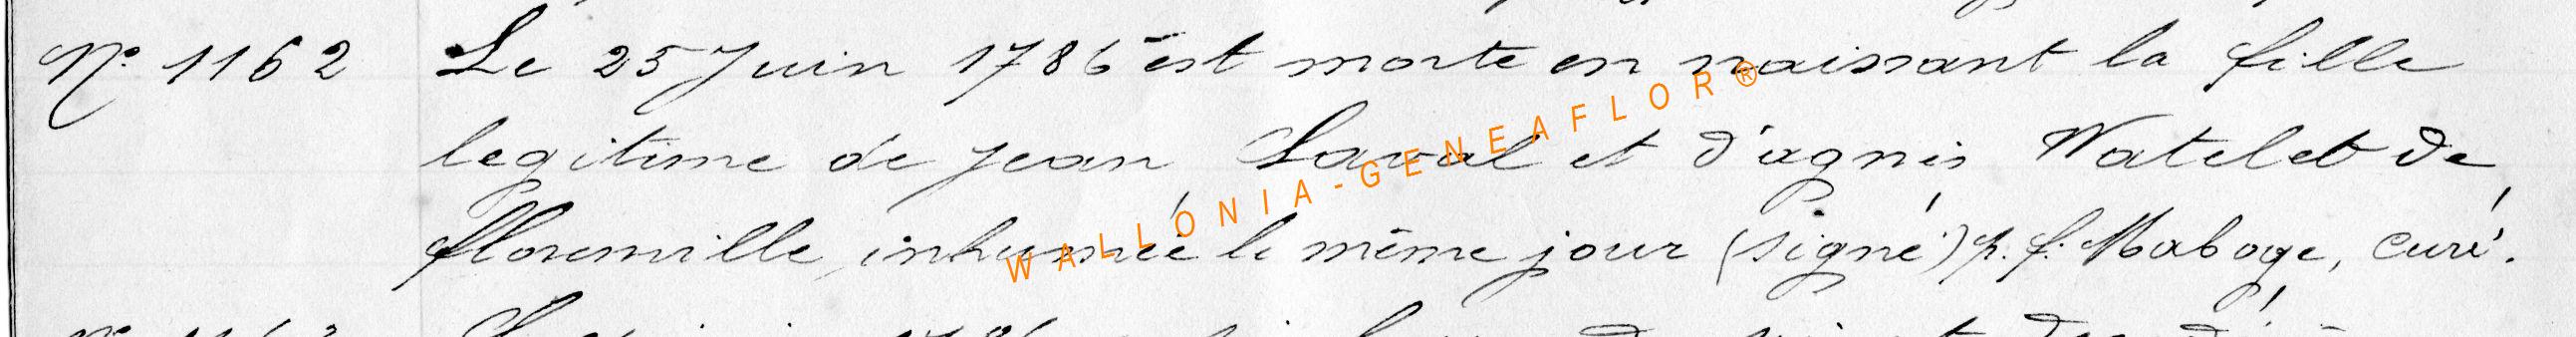 N° 1162 Le 25 Juin 1786 est morte en naissant la fille
legitime de jean Laval et d'agnès Watelet de
florenville, inhumée le même jour (signé) p. f. Maboge, curé.
WALLONIA-GENEAFLOR®